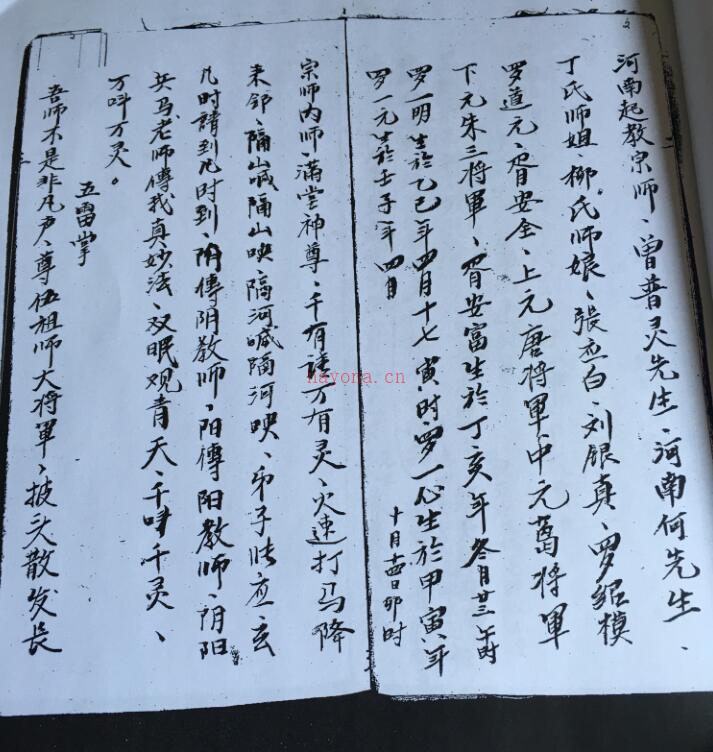 河南起教宗师、曾普灵先生、河南何先生、
丁氏师姐、柳氏师娘、張应白、刘银真、罗绍模
罗道元、胥安全、上元唐将軍、中元葛将軍
下元朱三将軍、胥安富生於丁亥年冬月廿三午时
罗一明生於乙巳年四月十七寅时、罗一心生於甲寅、年
十月十四日卯时
罗一元生於壬子年四月
宗师内师、满堂神尊、千有請万有灵、火速打马降
来邻、隔山喊隔山应、隔河喊隔河应、弟子
凡时請到凡时到、阴傳阴教师、阳傳阳教师、阴阳
兵马老师傅我真妙法、双眼观青天、千呌千灵、
万呌万灵。
五雷掌
吾师不是非凡声、尊伍祖师大将軍、披头散发長
hayona.cn